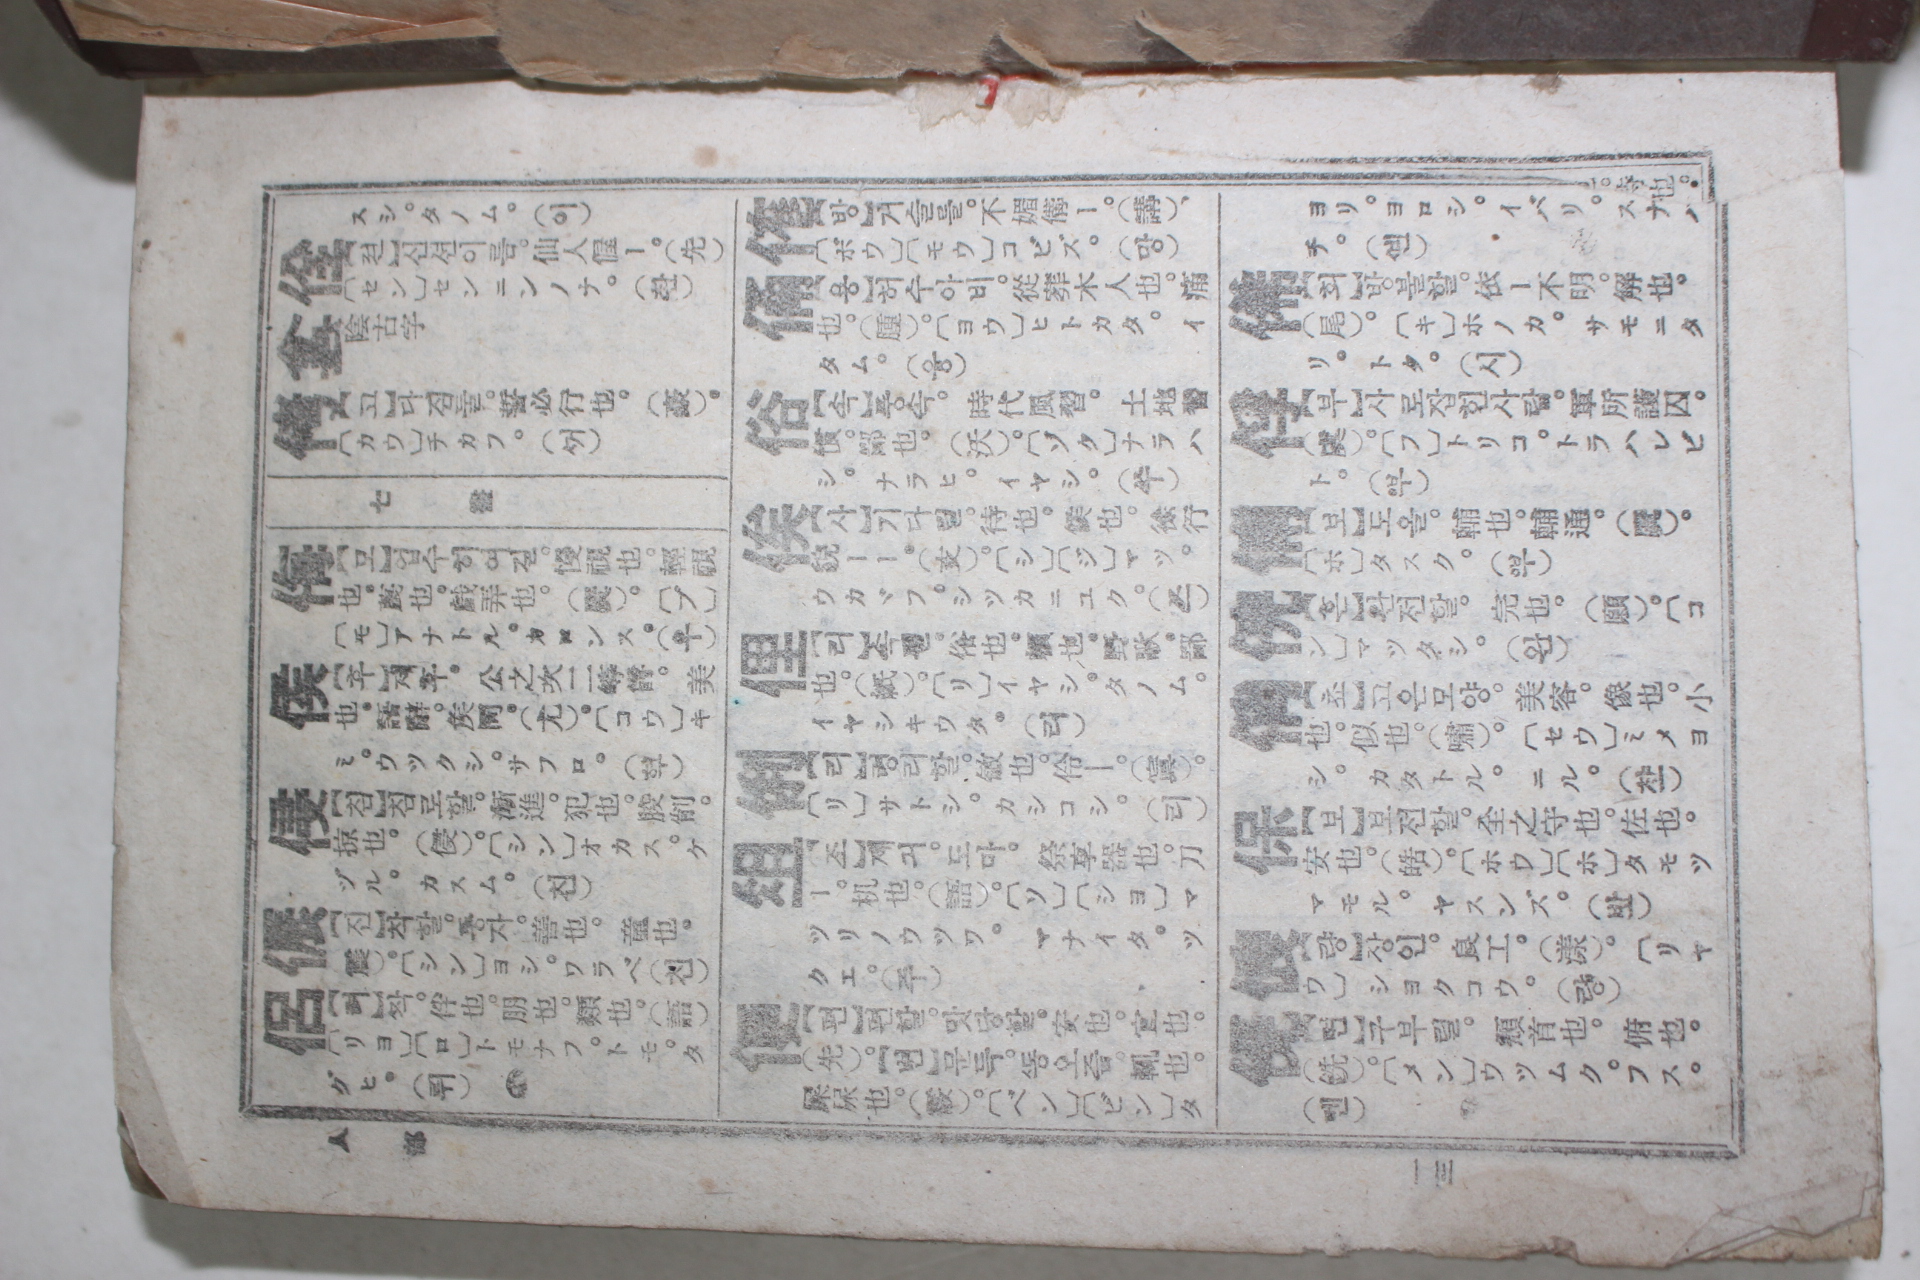 スシ。タノム。(이)
佺
【전】신선이름。仙人偓ー。(先)
〔セン〕センニンノナ。(촨)
侌
陰古字
侤
【고】다짐둘。誓必行也。(豪)。
〔カウ〕チカフ。(커)
七畫
侮
【모】업수히여길。慢視也。輕視
也。蔑也。戱弄也。(麌)。〔ブ〕
〔モ〕アナトル。カロンス。(우)
侯
【후】제후。公之次二等爵。美
也。語辭。侯閒。(尤)。〔コウ〕キ
ミ。ウツクシ。サフロ。(허)
侵
【침】침로할。漸進。犯也。朘削。
掠也。(侵)。〔シン〕オカス。ケ
ヅル。カスム。(친)
侲
【진】착할。동자。善也。童也。
(震)。〔シン〕ヨシ。ワラベ(친)
侶
【려】짝。伴也。朋也。類也。(語)
〔リヨ〕〔ロ〕トモナフ。トモ。タ
グヒ。(뤼)
人部
㑌
【방】거슬를。不媚㑌ー。(講)、
〔ボウ〕〔モウ〕コビズ。(망)
俑
【용】허수아비。從葬木人也。痛
也。(腫)。〔ヨウ〕ヒトカタ。イ
タム。(융)
俗
【속】풍속。時代風習。土地習
慣。鄙也。(沃)。〔ゾク〕ナラハ
シ。ナラヒ。イヤシ。(쑤)
俟
【사】기다릴。待也。候也。徐行
貌ーー。(支)。〔シ〕〔ジ〕マツ。
ウカヾフ。シツカニユク。(쓰)
俚
【리】속될。俗也。賴也。野歌。鄙
也。(紙)。〔リ〕イヤシ。タノム。
イヤシキウタ。(리)
俐
【리】령리할。敏也。伶ー。(寘)。
〔リ〕サトシ。カシコシ。(리)
俎
【조】제긔。도마。祭享器也。刀
ー。机也。(語)。〔ソ〕〔シヨ〕マ
ツリノウツワ。マナイタ。ツ
クエ。(주)
便
【편】편할。맛당할。安也。宜也。
(先)。【변】문득。똥오줌。輒也。
屎尿也。(霰)。〔ベン〕〔ビン〕タ
ヨリ。ヨロシ。イバリ。スナハ
チ。(볜)
俙
【희】방불할。依ー不明。解也。
(尾)。〔キ〕ホノカ。サモニタ
リ。トク。(시)
俘
【부】사로잡힌사람。軍所護囚。
(虞)。〔フ〕トリコ。トラハレビ
ト。(뿌)
俌
【보】도올。輔也。輔通。(麌)。
〔ホ〕タスク。(뿌)
俒
【혼】완전할。完也。(願)。〔コ
ン〕マツタシ。(완)
俏
【초】고은모양。美容。像也。小
也。似也。(嘯)。〔セウ〕ミメヨ
シ。カタトル。ニル。(챠)
保
【보】보전할。全之守也。佐也。
安也。(皓)。〔ホウ〕〔ホ〕タモツ
マモル。ヤスンズ。(반)
俍
【량】장인。良工。(漾)。〔リヤ
ウ〕シヨクコウ。(량)
俛
【면】구부릴。頫首也。俯也。
(銑)。〔メン〕ウツムク。フス。
(몐)
一三